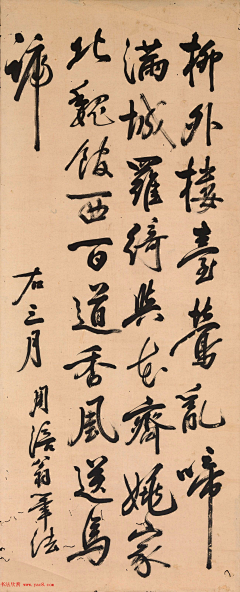 柳外樓臺鶯亂啼
滿城羅綺與花齊姚家
北魏西百道香風送馬
蹄
右三月 用涪翁筆法
书法欣赏 www.yac8.com